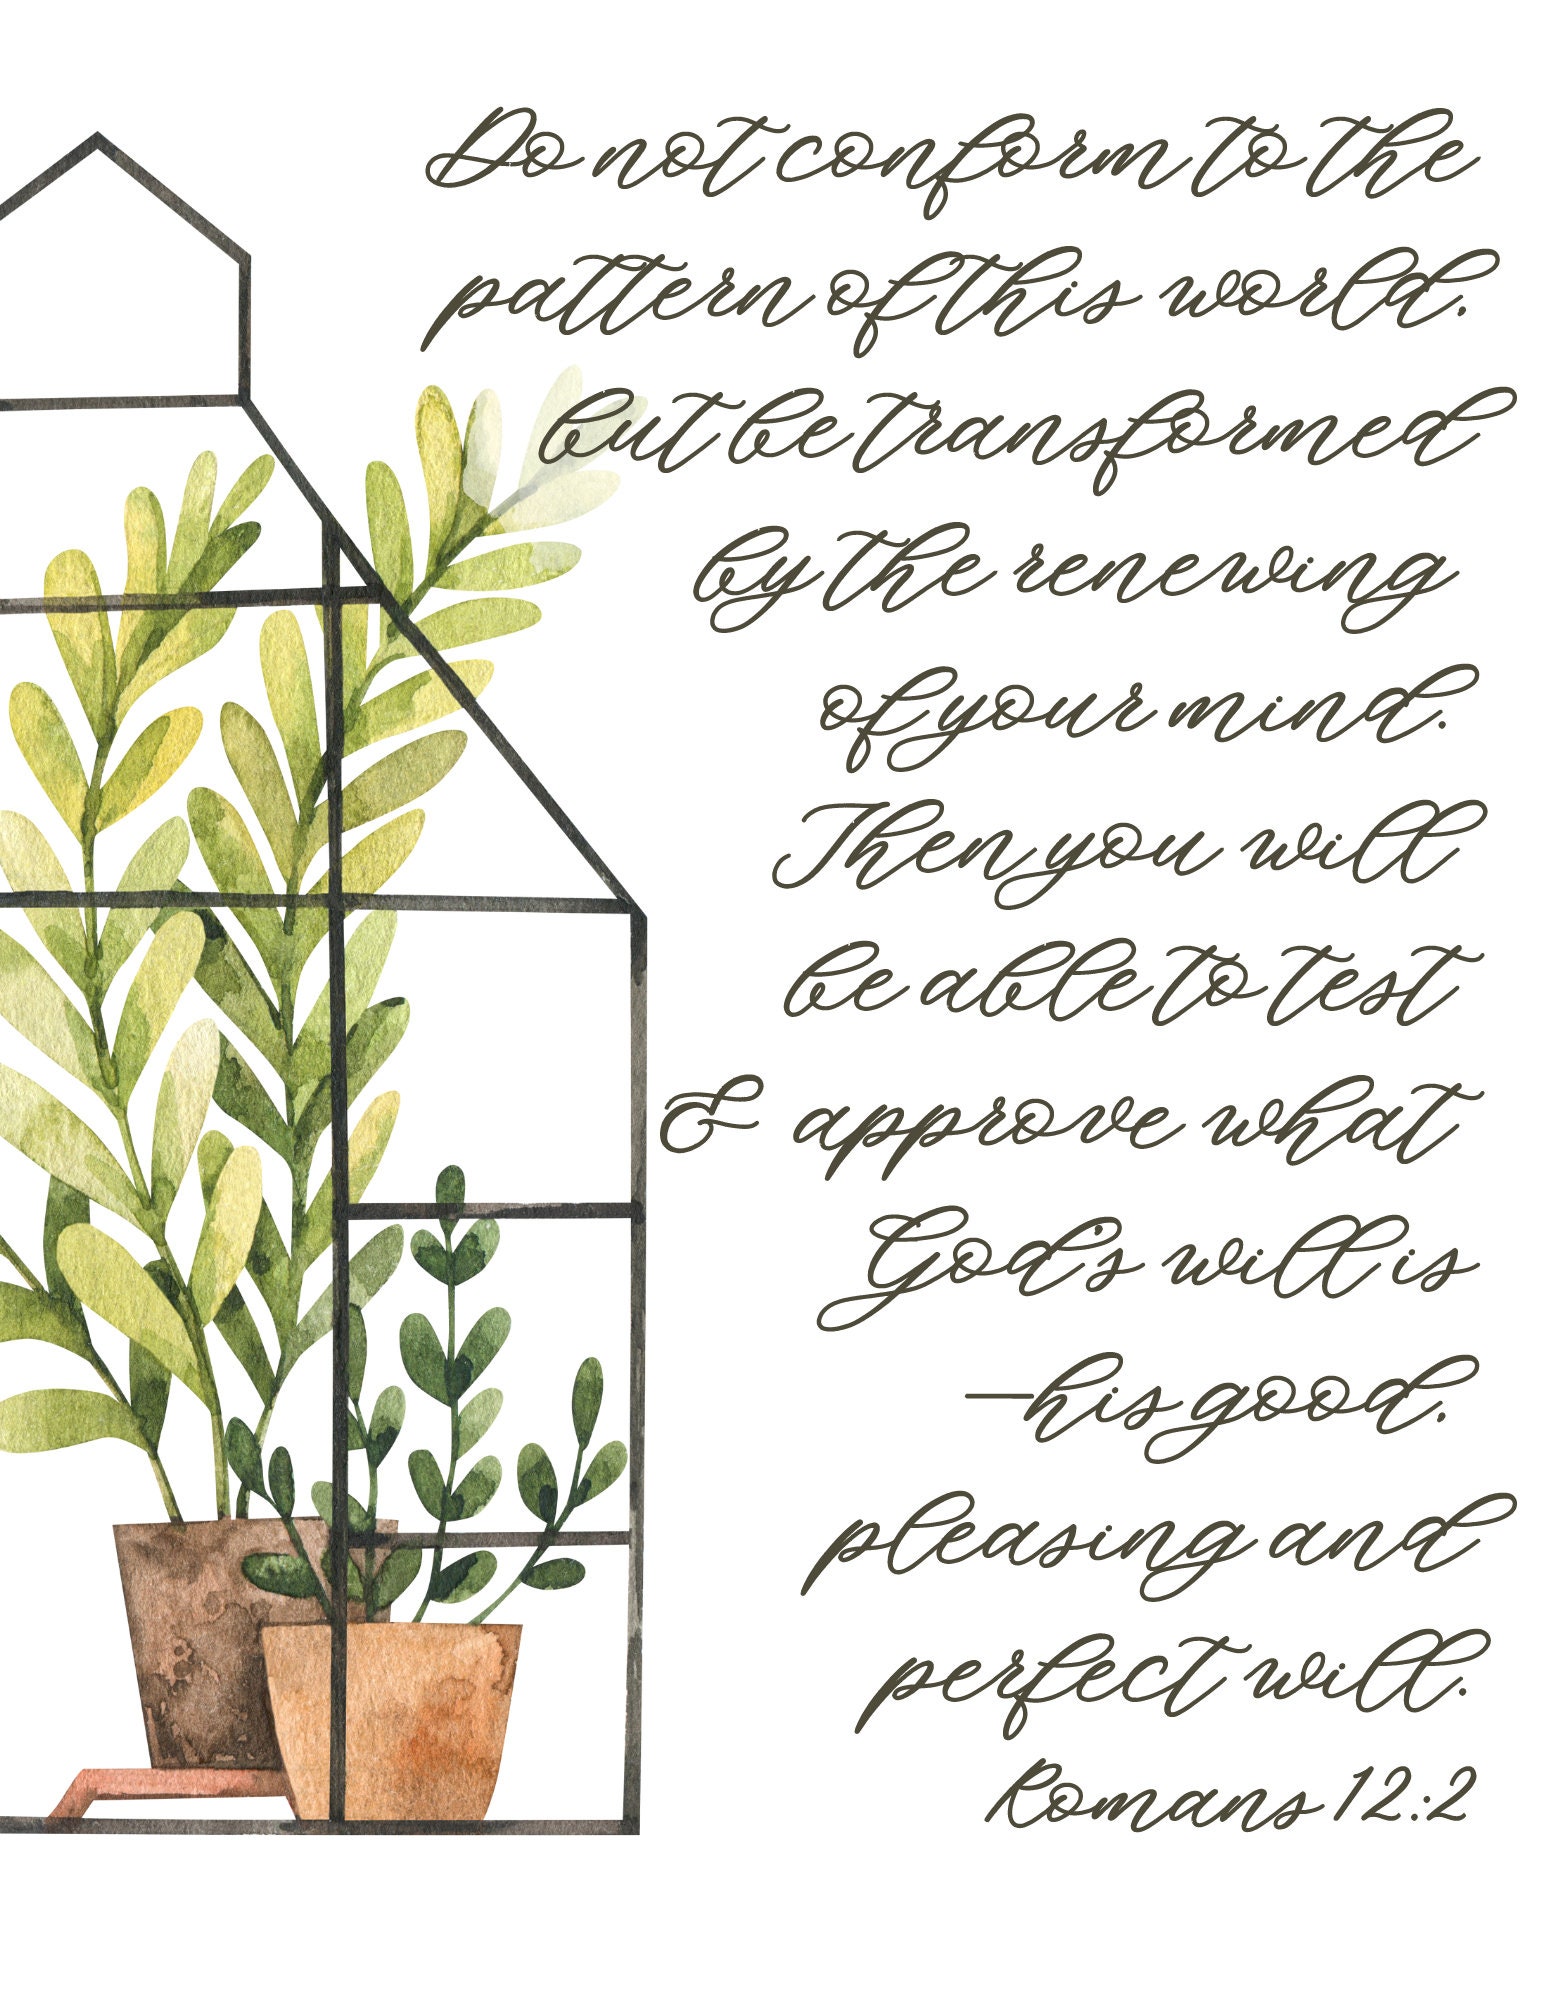 Do not conform to the
pattern of this world.
but be transformed
by the renewing
of your mind.
Then you will
be able to test
& approve what
God's will is
—his good,
pleasing and
perfect will.
Romans 12:2